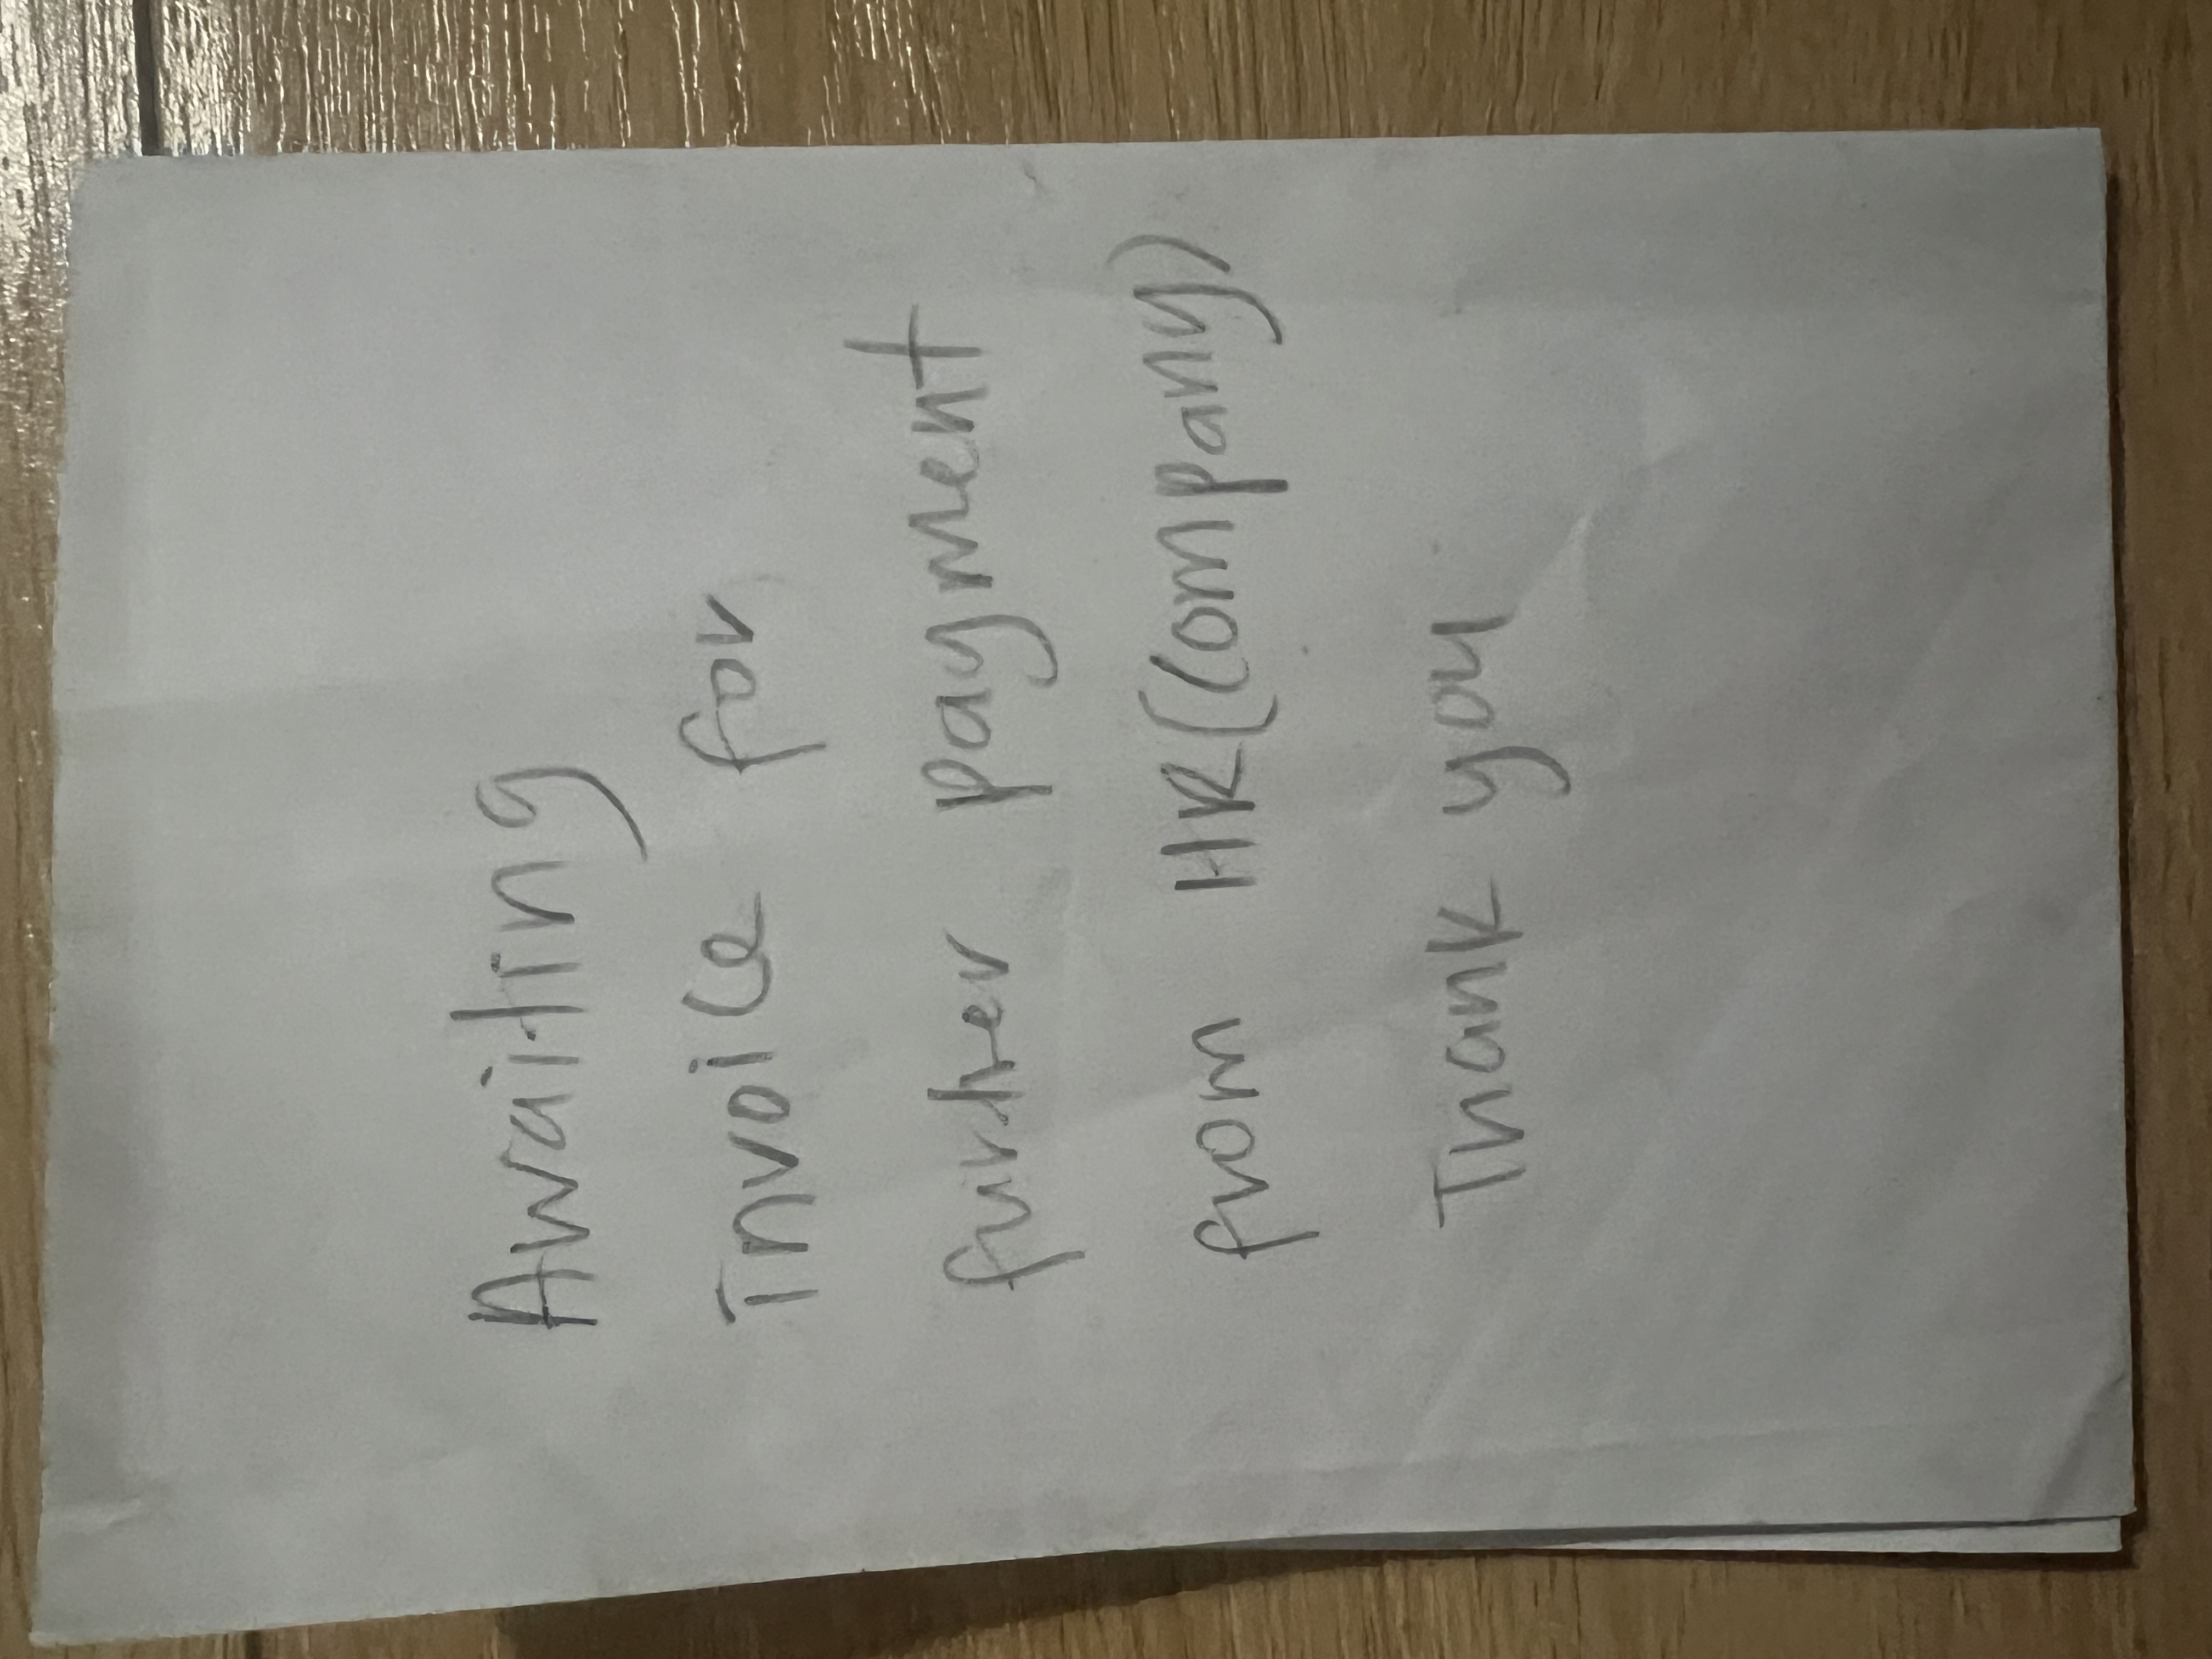 Awaiting
Invoice for
further payment
from HR(Company)
Thank you